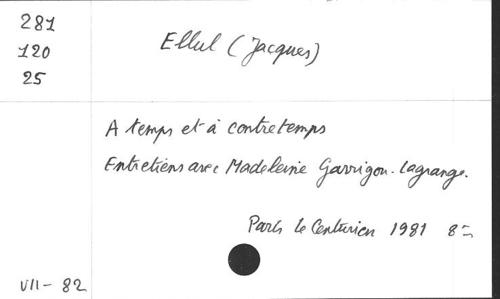 281
120
25
Ellul (Jacques)
A temps et à contretemps
Entretiens avec Madeleine Garrigou-Lagrange.
Paris le Centurion 1981 8°
VII - 82